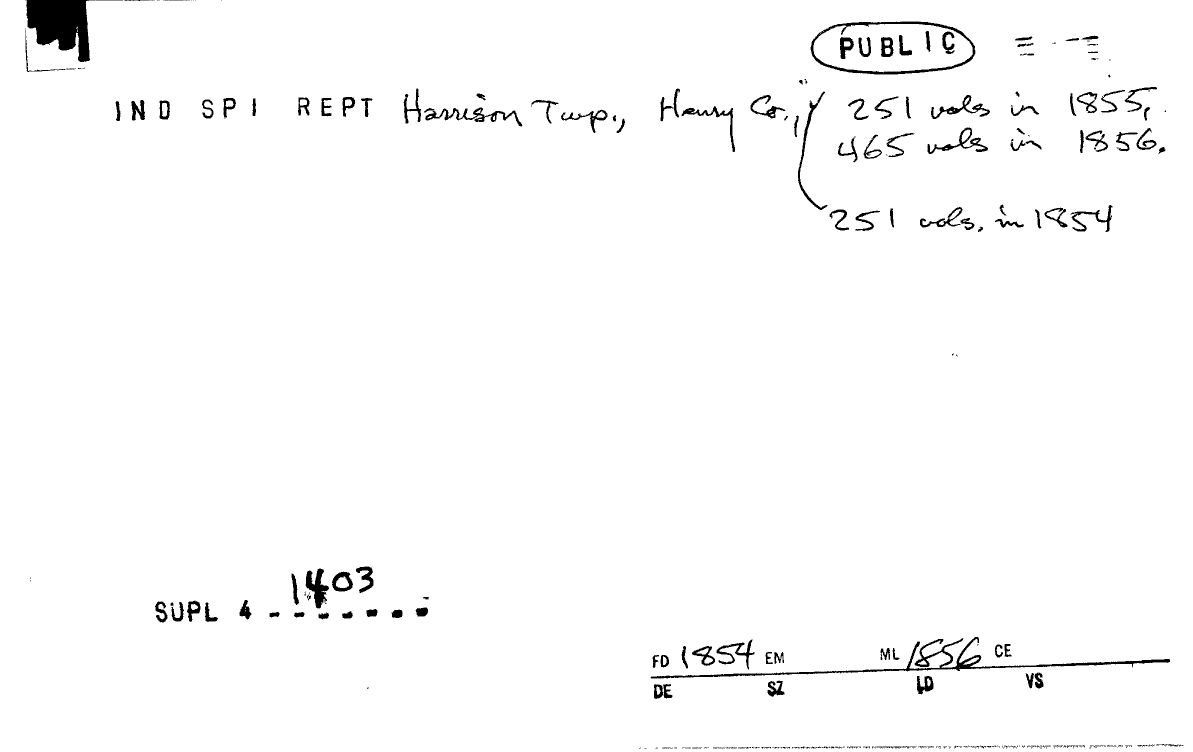 PUBLIC
IND SPI REPT Harrison Twp., Henry Co., 251 vols in 1855,
465 vols in 1856.
251 vols. in 1854
1403
SUPL 4 - - - - - - -
FD 1854 EM ML 1856 CE
DE SZ LD VS